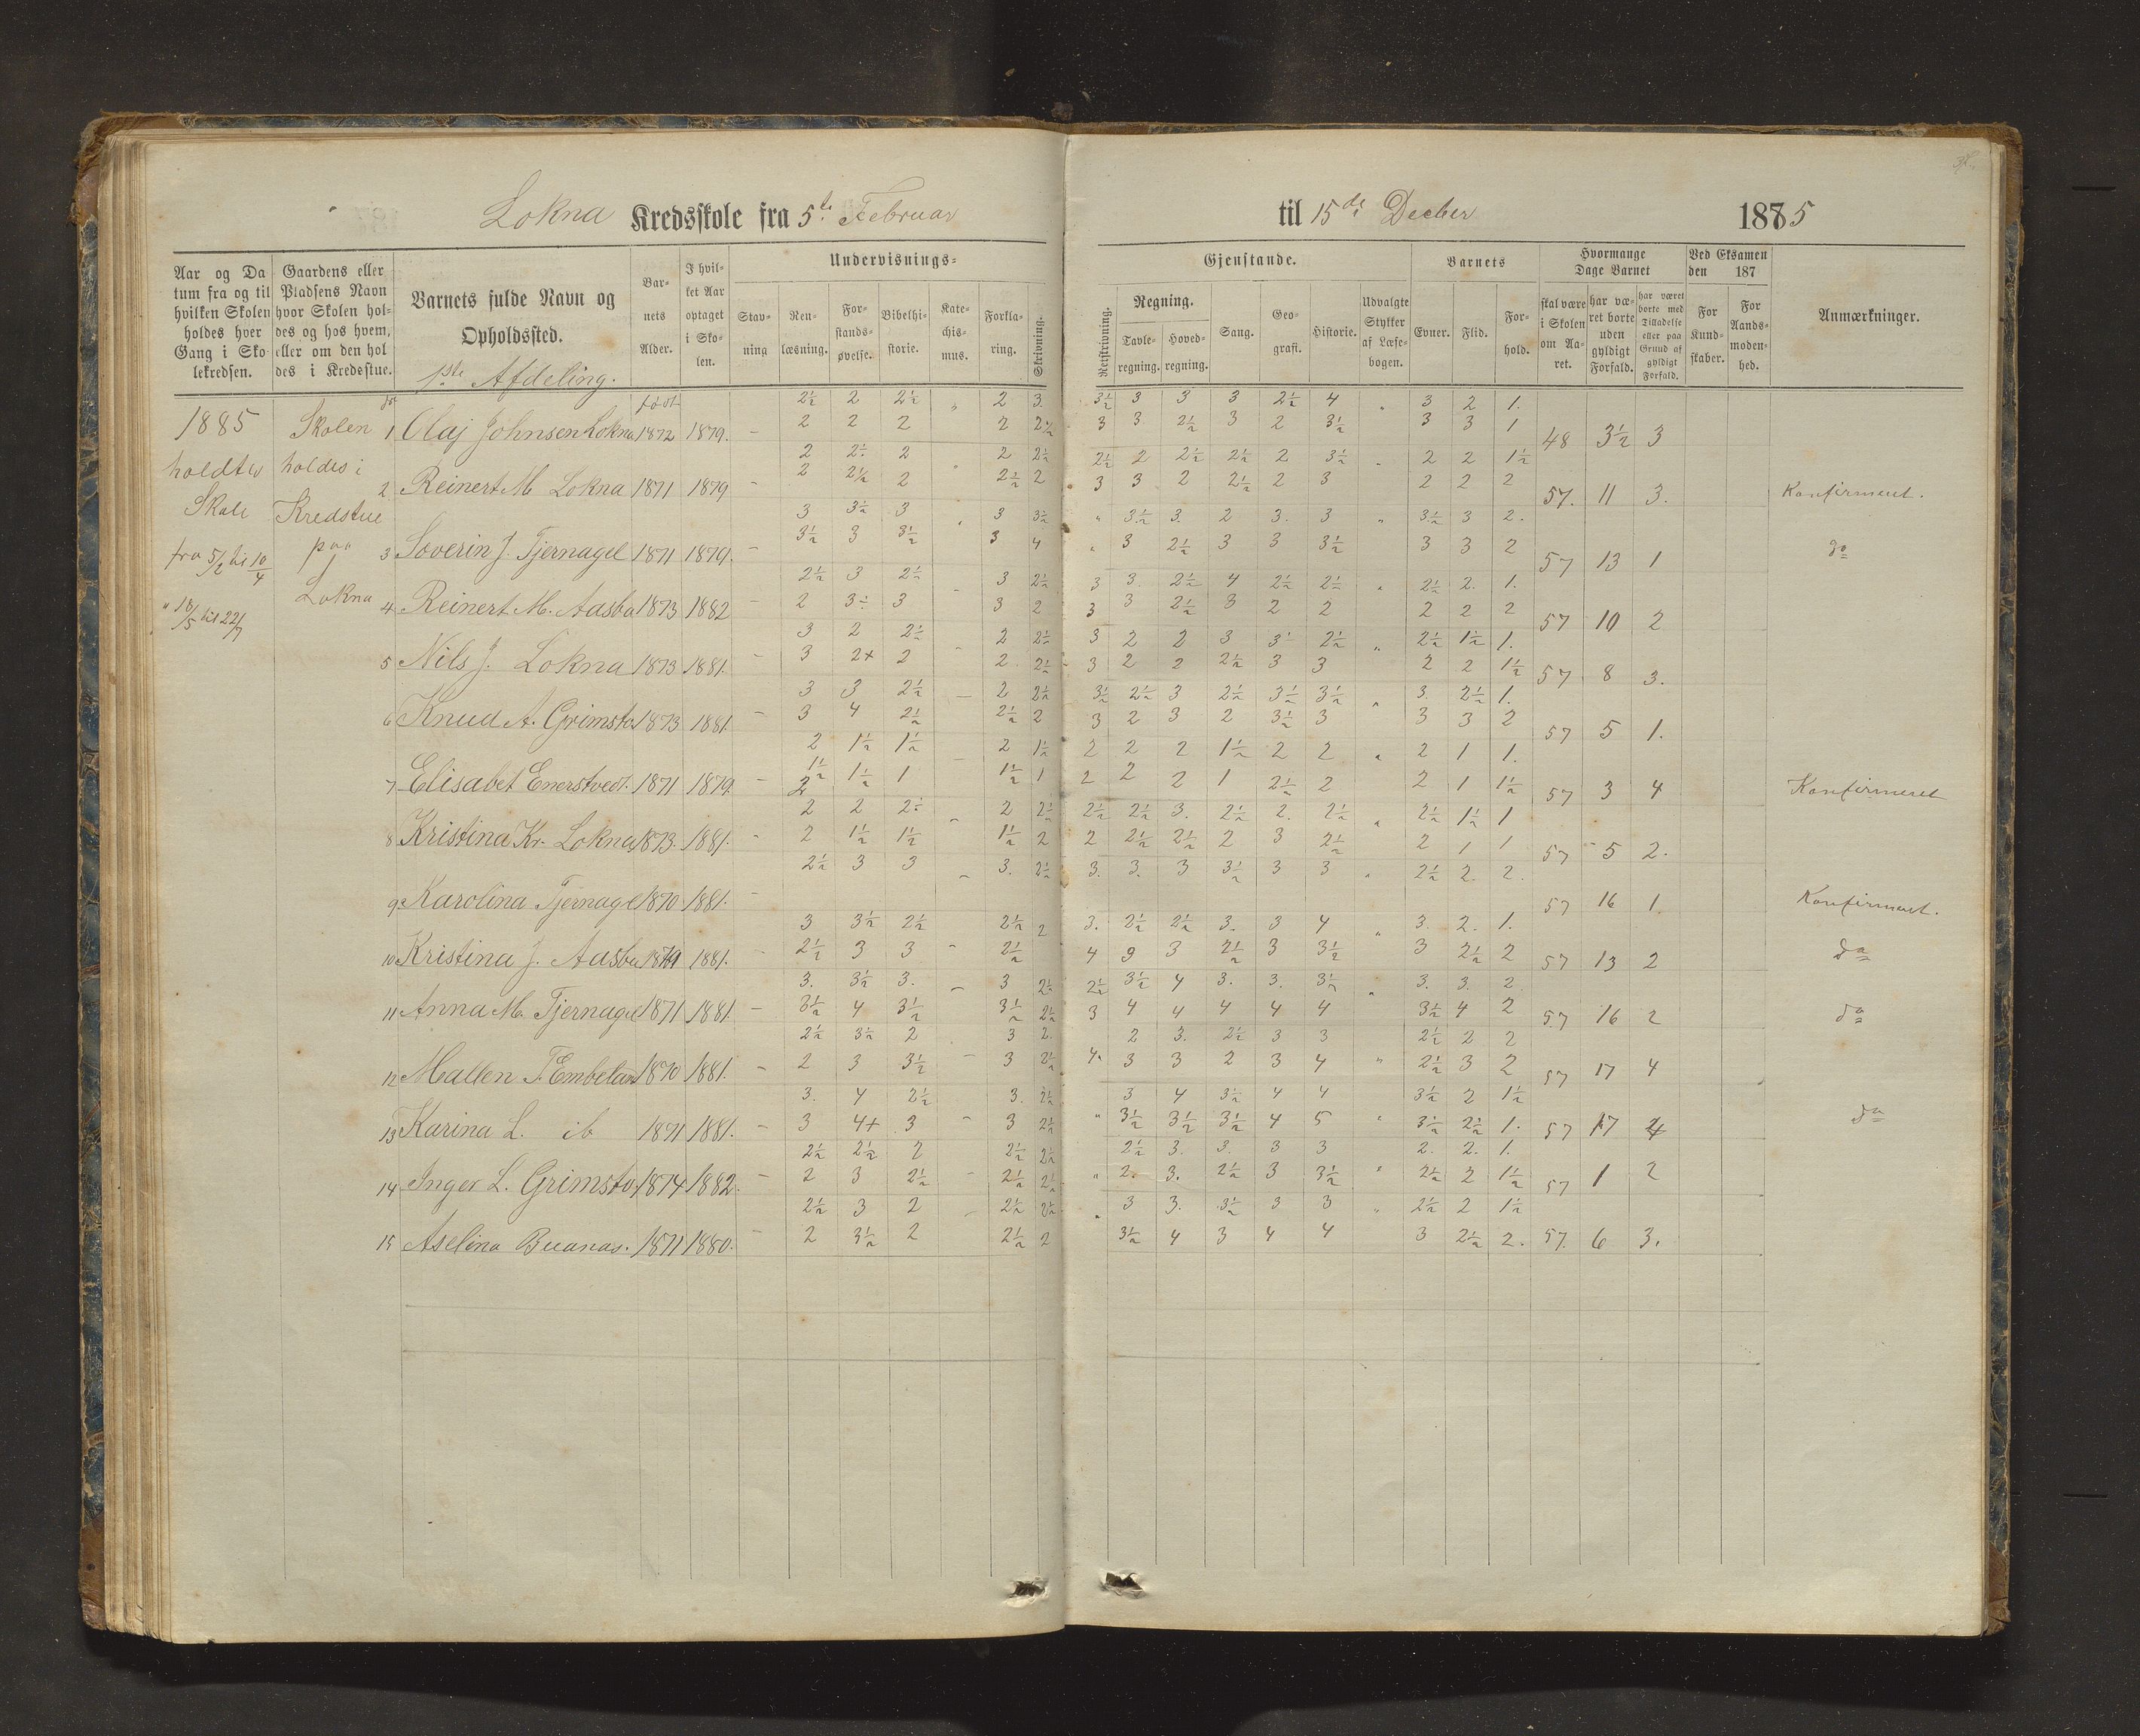 38.
Lokna Kredsskole fra 5te Februar til 15de Decber 1875 5
Aar og Da tum fra og til hvilken Skolen holdes hver Gang i Sko lekredsen.
Gaardens eller Pladsens Navn hvor Skolen hol= des og hos hvem, eller om den hol des i Kredsstue.
Barnets fulde Navn og Opholdssted.
Bar= nets Alder.
I hvil= ket Aar optaget i Sko= len.
Undervisnings= Gjenstande.
Stav= ning
Ren= læsning.
For= stands= øvelse.
Bibelhi= storie.
Kate= chis= mus.
Forkla= ring.
Skrivning.
Retskrivning.
Regning.
Tavle= regning.
Hoved= regning.
Sang.
Geo= grafi.
Historie.
Udvalgte Stykker af Læse= bogen.
Barnets
Evner. Flid. For= hold.
Hvormange Dage Barnet
skal være i Skolen om Aa= ret.
har væ= ret borte uden gyldigt Forfald.
har været borte med Tilladelse eller paa Grund af gyldigt Forfald.
Ved Eksamen den 187
For Kund= skaber.
For Aands= moden= hed.
Anmærkninger.
1ste Afdeling.
født
1885 holdtes Skole fra 5/2 til 10/4
" 18/5 til 22/7
Skolen holdes i Kredstue paa Lokna
2½ 2 2½ " 2 3. 3½ 3 3 3 2½ 4 " 3 2 1.
1 Olaj Johnsen Lokna 1872 1879. - 2 2 2 2 2½ 3 3 2½ 3 2 3½ 3 3 1 48 3½ 3
2 2½ 2 2 2½ 2½ 2 2½ 2½ 2 3½ " 2 2 1½
2 Reinert M Lokna 1871 1879 - 2 2½ 2 " 2½ 2 3 3 2 2½ 2 3 2 2 2 57. 11 3. Konfirmeret.
3 3½ 3 " 3 3½ " 3½ 3. 2 3. 3 " 3½ 3 2.
3 Soverin J. Tjernagel 1871 1879. - 3½ 3 3½ 3 4 " 3 2½ 3 3 3½ 3 3 2 57 13 1 do
2½ 3 2½ 3 2½ 3 3. 2½ 4 2½ 2½ " 2½ 2. 1.
4 Reinert M. Aasbu 1873 1882 - 2 3½ 3 - 3 2 3 3 2½ 3 2 2 2 2 2 57 10 2
3 2 2½ 2 2½ 3 2 2 3 3½ 2½ " 2½ 1½ 1.
5 Nils J. Lokna 1873 1881. - 3 2+ 2 - 2 2½ 3 2 2 2½ 3 3 2 2 1½ 57 8 3.
3 3 2½ - 2 2½ 3½ 2½ 3 2½ 3½ 3½ " 3. 2½ 1.
6 Knud A. Grimsto 1873 1881. - 3 4 2½ 2½ 2 3 2 3 2 3½ 3 3 3 2 57 5 1.
2 1½ 1½ - 2 1½ 2 2 2 1½ 2 2 " 2 1 1.
7 Elisabet Enerstvedt. 1871 1879. - 1½ 1½ 1 1½ 1 2 2 2 1 2½ 2 2 1 1½ 57 3 4 Konfirmeret
2 2 2½ - 2 2½ 2½ 2½ 3. 2½ 2. 2½ " 2½ 1½ 1
8 Kristina Kr. Lokna 1873. 1881. - 2 1½ 1½ 1½ 2 2 2½ 2½ 2 3 2½ 2 1 1 57 5 2.
2½ 3 3 - 3. 2½ 3. 3. 3 3½ 3 3 " 2½ 2. 2.
9 Karolina Tjernagel 1870 1881. - 57 16 1 Konfirmeret.
3 3½ 2½ 2½ 2 3. 2½ 2½ 3. 3 4 " 3. 2. 1.
10 Kristina J. Aasbu 1871 1881. - 2½ 3 3 - 2½ 4 3 3 2½ 3 3½ 3 2½ 2 57 13 2 do
3. 3½ 3. - 3 2½ 2½ 3½ 4 3. 3. 3½ " 3. 3. 2.
11 Anna M. Tjernagel 1871 1881. - 3½ 4 3½ 3½ 2½ 3 4 4 4 4 4 3½ 4 2 57 16 2 do
2½ 3½ 2 3 2. 2 3. 2½ 3 3 2½ 2 2
12 Mallen T. Embeland 1870 1881. - 2 3 3½ - 3 2½ 4. 3 3 2 3 4 " 2½ 3 2 57 17 4
3. 4 2½ 3. 2½ 3 4 3½ 4 4 3½ 2 1½
13 Karina L. ib 1871 1881. - 3 4+ 3 - 3 2½ " 3½ 3½ 3½ 4 5 " 3½ 2½ 1. 57 17 4 do
2½ 2½ 2 2½ 2½ 2½ 3. 3. 3 3 2. 2. 1.
14 Inger L. Grimsto. 1874 1882. - 2 3 2½ - 2½ 2½ " 2. 3. 2½ 3 3½ " 2½ 2 1½ 57 1 2
2½ 3 2 - 2½ 2½ " 3 3. 3½ 3 3 " 2½ 2 1½
15 Aselina Buanas. 1871 1880. - 2 3½ 2 2½ 2 3½ 4 3 4 4 3 2½ 2. 57. 6 3.